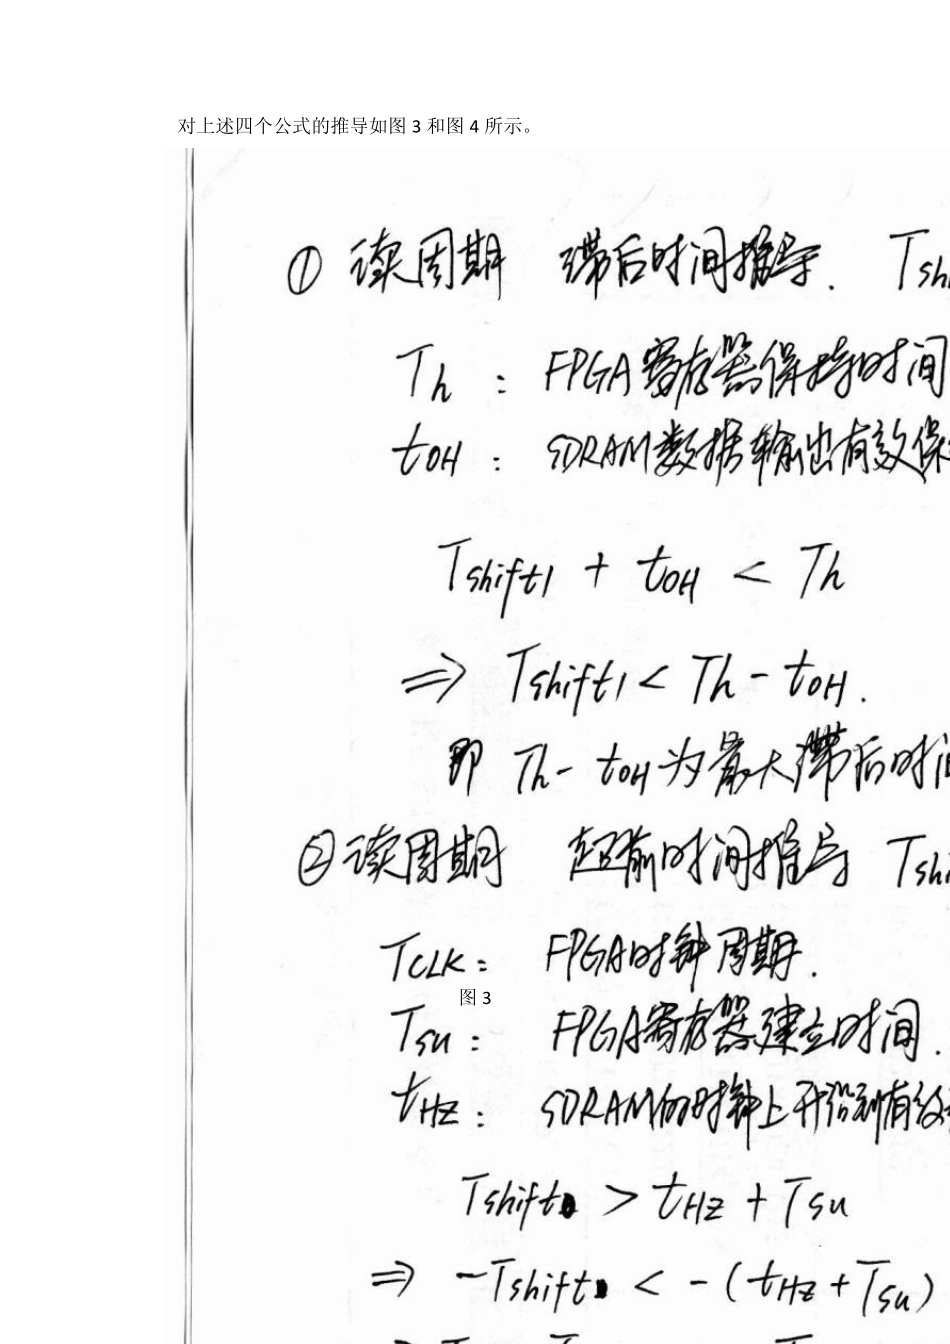 对上述四个公式的推导如图 3 和图 4 所示。
① 读周期 滞后时间推导. Tshi
Th : FPGA寄存器保持时间
tOH : SDRAM数据输出有效保
Tshift1 + tOH < Th
⇒ Tshift1 < Th - tOH.
即 Th - tOH 为最大滞后时间
② 读周期 超前时间推导 Tshi
TCLK : FPGA时钟周期.
图 3
Tsu : FPGA寄存器建立时间.
tHZ : SDRAM的时钟上升沿到有效
Tshift > tHZ + Tsu
⇒ -Tshift < -(tHZ + Tsu)